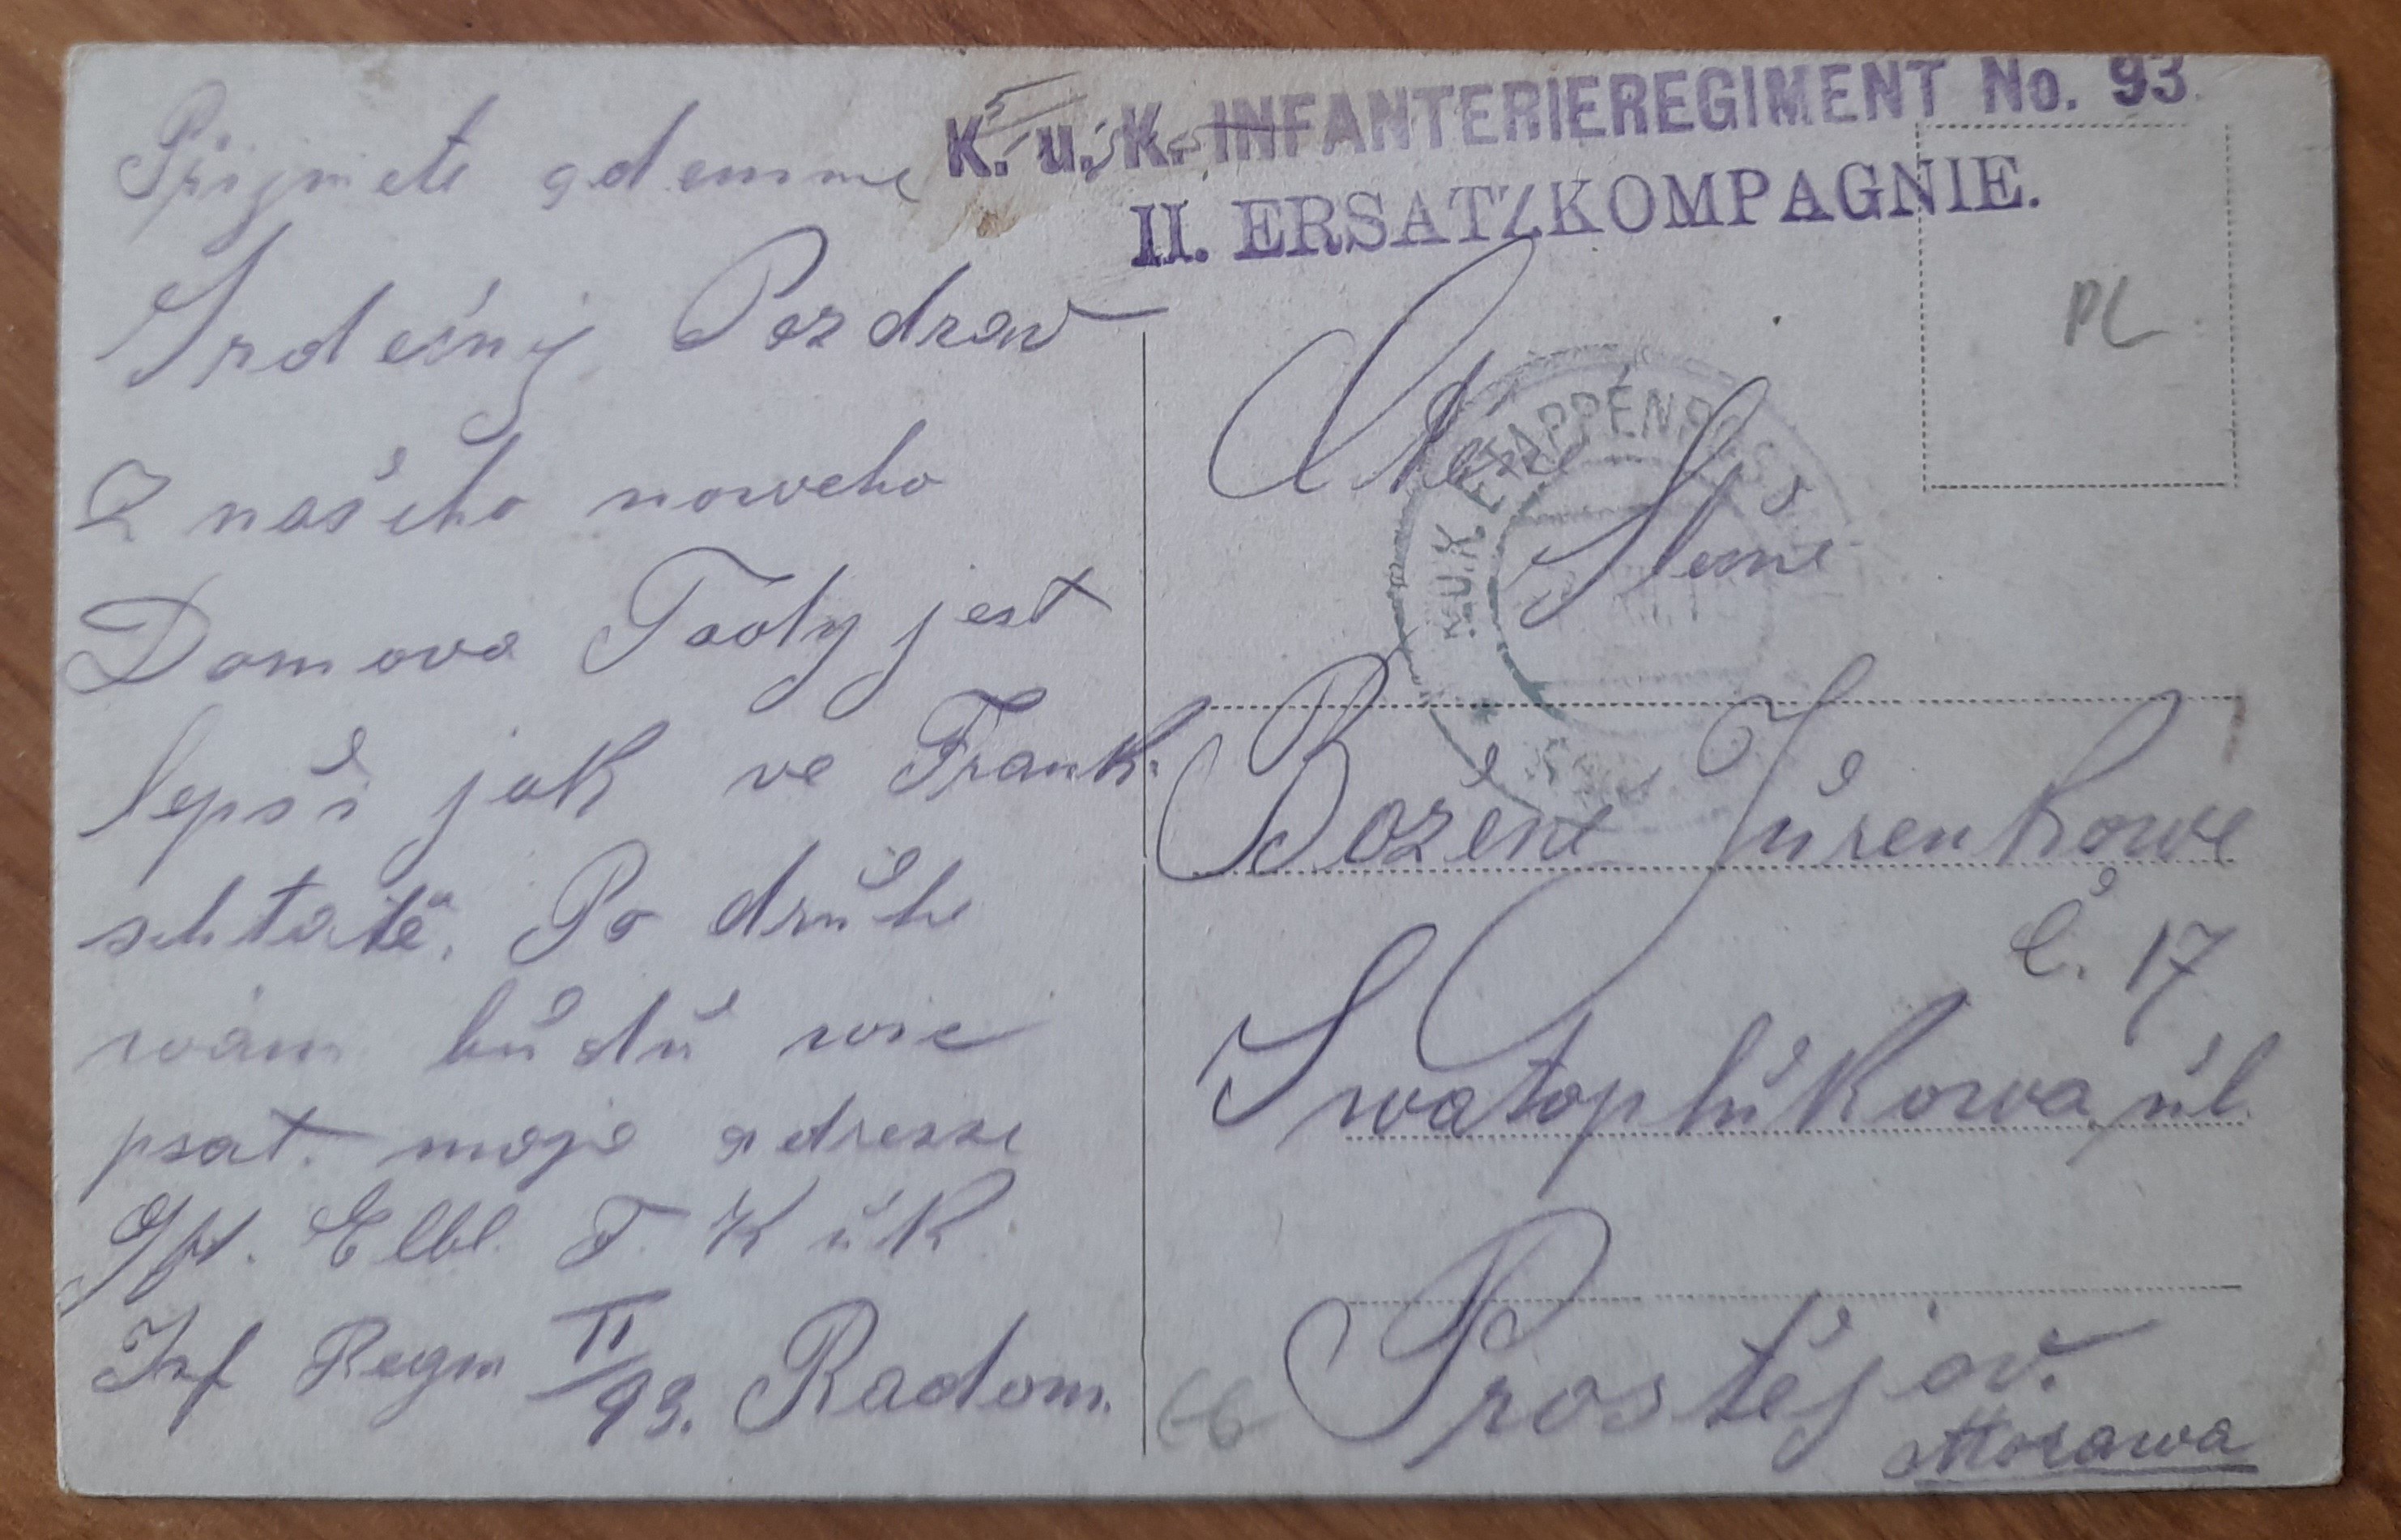 K. u. K. INFANTERIEREGIMENT No. 93
II. ERSATZKOMPAGNIE.
Přijmete odemne
Srdečny Pozdraw
Z našeho noweho
Domova Tady jest
lepši jak ve Frank.
schtatě. Po drůhe
wám bůdů wic
psat. moja adresse
Gft. Elbl F. K ů K.
Inf Regm II/93. Radom.
PL
K.U.K. ETAPPENPOST
Slećne
Boženě Jůrenkowe
Č. 17
Swatoplůkowa ůl.
Prostějov.
Morawa